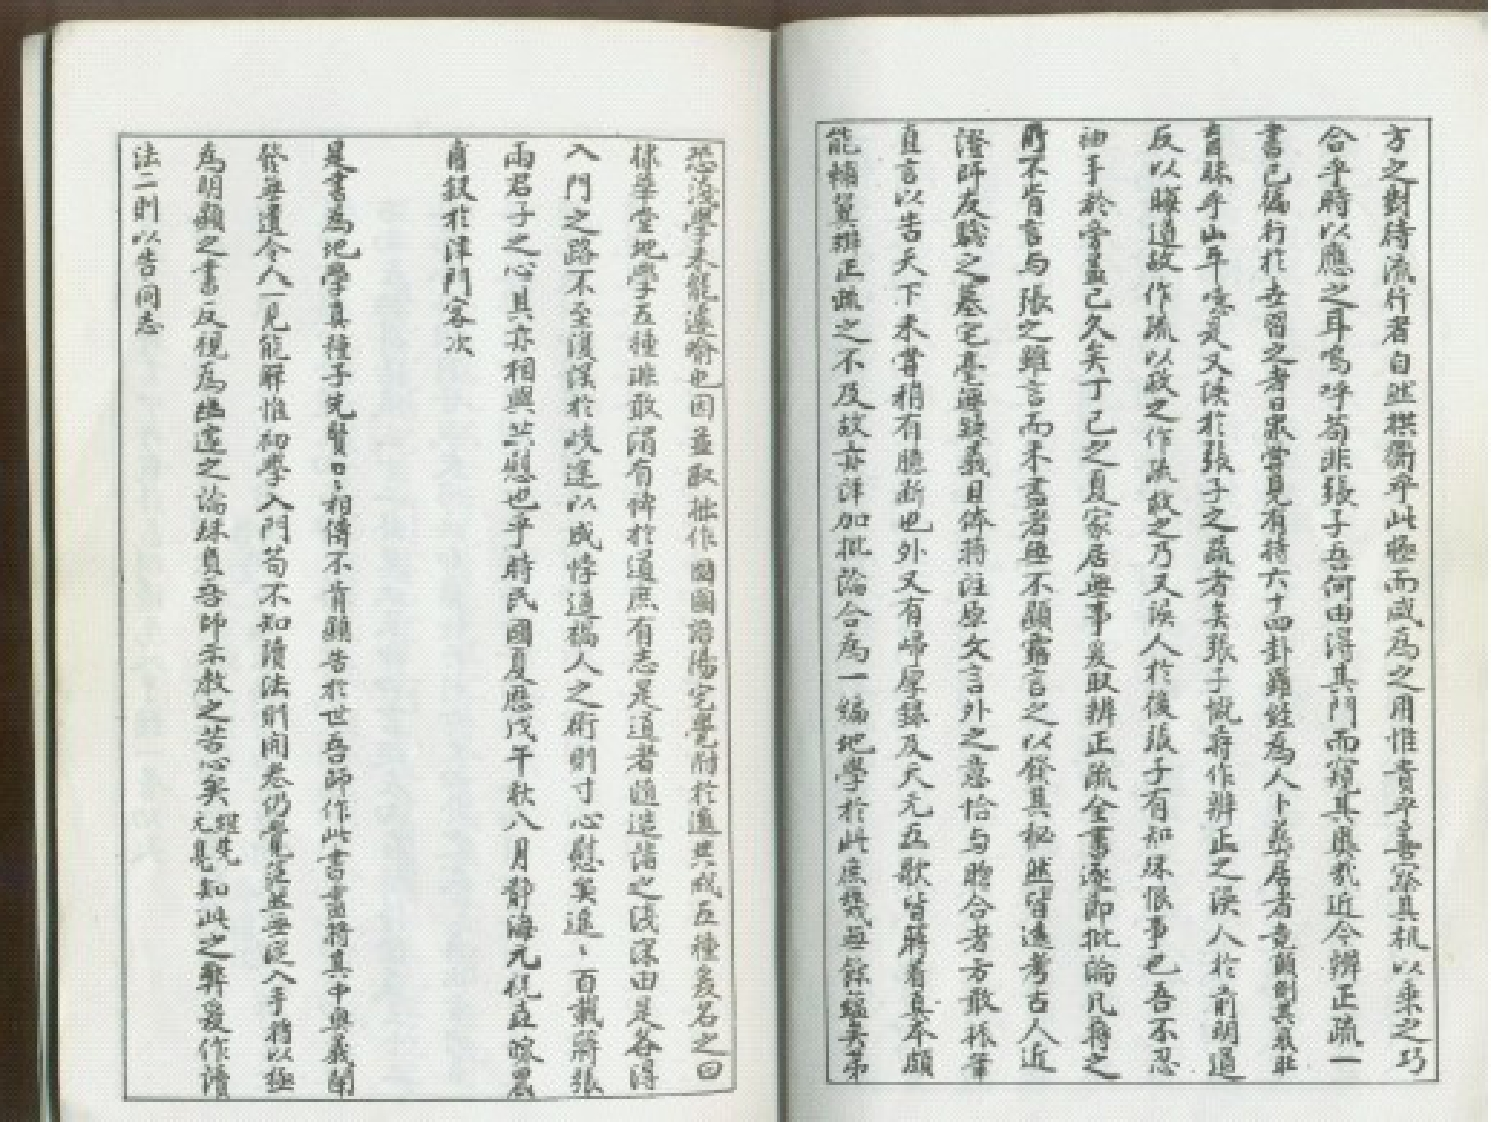 方之對待流行者自然拱衛乎此極而咸為之用惟貴乎善察其机以乘之巧
合乎時以應之耳嗚呼苟非張子吾何由得其門而窺其奧哉近今辨正疏一
書已徧行於世習之者日眾嘗見有持六十四卦羅經為人卜葬居者竟
盲昧乎山平意是又誤於張子之疏者矣張子慨蔣作辨正之誤人於前明道
反以晦道故作疏以救之作疏救之乃又誤人於後張子有知殊恨事也吾不忍
袖手於旁益已久矣丁巳之夏家居無事爰取辨正疏全書逐節批論凡蔣之
所不肯言与張之雖言而未盡者無不顯露言之以餘其秘然皆遠考古人近
證師友驗之墓宅毫無疑義且体蔣注原文言外之意恰与脗合者方敢振筆
直言以告天下未嘗稍有臆斷也外又有歸厚錄及天元五歌皆蔣着真本頗
能補益辨正疏之不及故亦詳加批論合為一編地學於此庶幾無餘蘊矣第
恐淺學未能遽喻也因並取拙作圖圖語陽宅覺附於進共成五種爰名之曰
棣華堂地學五種非敢謂有裨於道庶有志是道者隨造詣之淺深由是各得
入門之路不至復誤於岐途以成悖道禍人之術則寸心慰矣進、百載蔣張
兩君子之心其亦相與共慰也乎時民國夏歷戊午秋八月靜海元祝垚曖農
甫敍於津門客次
是書為地學真種子先賢口、相傳不肯顯告於世吾師作此書盡將其中奧義闡
發無遺令人一見能解惟初學入門苟不知讀法則開卷仍覺茫無從入手稍以極
為明顯之書反視為幽邃之論殊負吾師示教之苦心矣知此之弊爰作讀
法二則以告同志